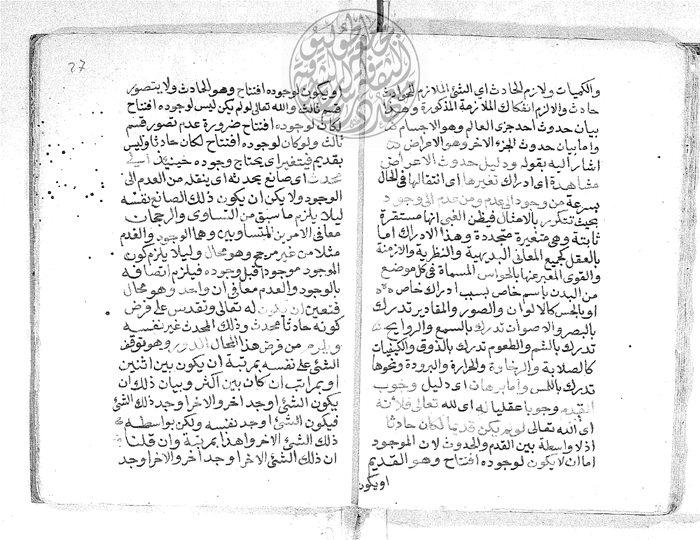 والكميات ولازم الحادث اى الشئ الملازم للحوادث
حادث والا لزم انفكاك الملازمة المذكورة وهذا
بيان حدوث احد جزى العالم وهو الاجسام
واما بيان حدوث الجزء الاخر وهو الاعراض
اشار اليه بقوله ودليل حدوث الاعراض
مشاهدة اى ادراك تغيرها اى انتقالها فى الحال
بسرعة من وجود الى عدم ومن عدم الى وجود
بحيث تتكرر بالامثال فيظن الغبى انها مستقرة
ثابتة وهى متغيرة متجددة وهذا الادراك اما
بالعقل كجميع المعانى البديهية والنظرية والازمنة
والقوى المعبر عنها بالحواس المسماة فى كل موضع
من البدن باسم خاص بسبب ادراك خاص
او بالحس كالالوان والصور والمقادير تدرك
بالبصر والاصوات تدرك بالسمع والروايح
تدرك بالشم والطعوم تدرك بالذوق والكيفيات
كالصلابة والرخاوة والحرارة والبرودة ونحوها
تدرك باللمس واما برهان اى دليل وجوب
القدم وجوبا عقليا له اى لله تعالى فلانه
اى الله تعالى لو لم يكن قديما لكان حادثا
اذ لا واسطة بين القدم والحدوث لان الموجود
اما ان لا يكون لوجوده افتتاح وهو القديم
او يكون
27
او يكون لوجوده افتتاح وهو الحادث ولا يتصور
قسم ثالث والله تعالى لو لم يكن ليس لوجوده افتتاح
لكان لوجوده افتتاح ضرورة عدم تصور قسم
ثالث ولو كان لوجوده افتتاح لكان حادثا وليس
بقديم فيتغير اى يحتاج وجوده حينئذ الى
محدث اى صانع يحدثه اى ينقله من العدم الى
الوجود ولا يكن ان يكون ذلك الصانع نفسه
ليلا يلزم ما سبق من التساوى والرجحان
معا فى الامرين المتساويين وهما الوجود والعدم
مثلا من غير مرجح وهو محال وليلا يلزم كون
الموجود موجودا قبل وجوده فيلزم اتصافه
بالوجود والعدم معا فى ان واحد وهو محال
فتعين ان يكون له تعالى وتقدس على فرض
كونه حادثا محدث وذلك المحدث غير نفسه
ويلزم من فرض هذا المحال الدور وهو توقف
الشئ على نفسه بمرتبة ان يكون بين اثنين
او بمراتب ان كان بين اكثر وبيان ذلك ان
يكون الشئ اوجد اخر والاخر اوجد ذلك الشئ
فيكون الشئ اوجد نفسه ولكن بواسطة
ذلك الشئ الاخر وهذا بمرتبة وان قلنا
ان ذلك الشئ الاخر اوجد اخر والاخر اوجد